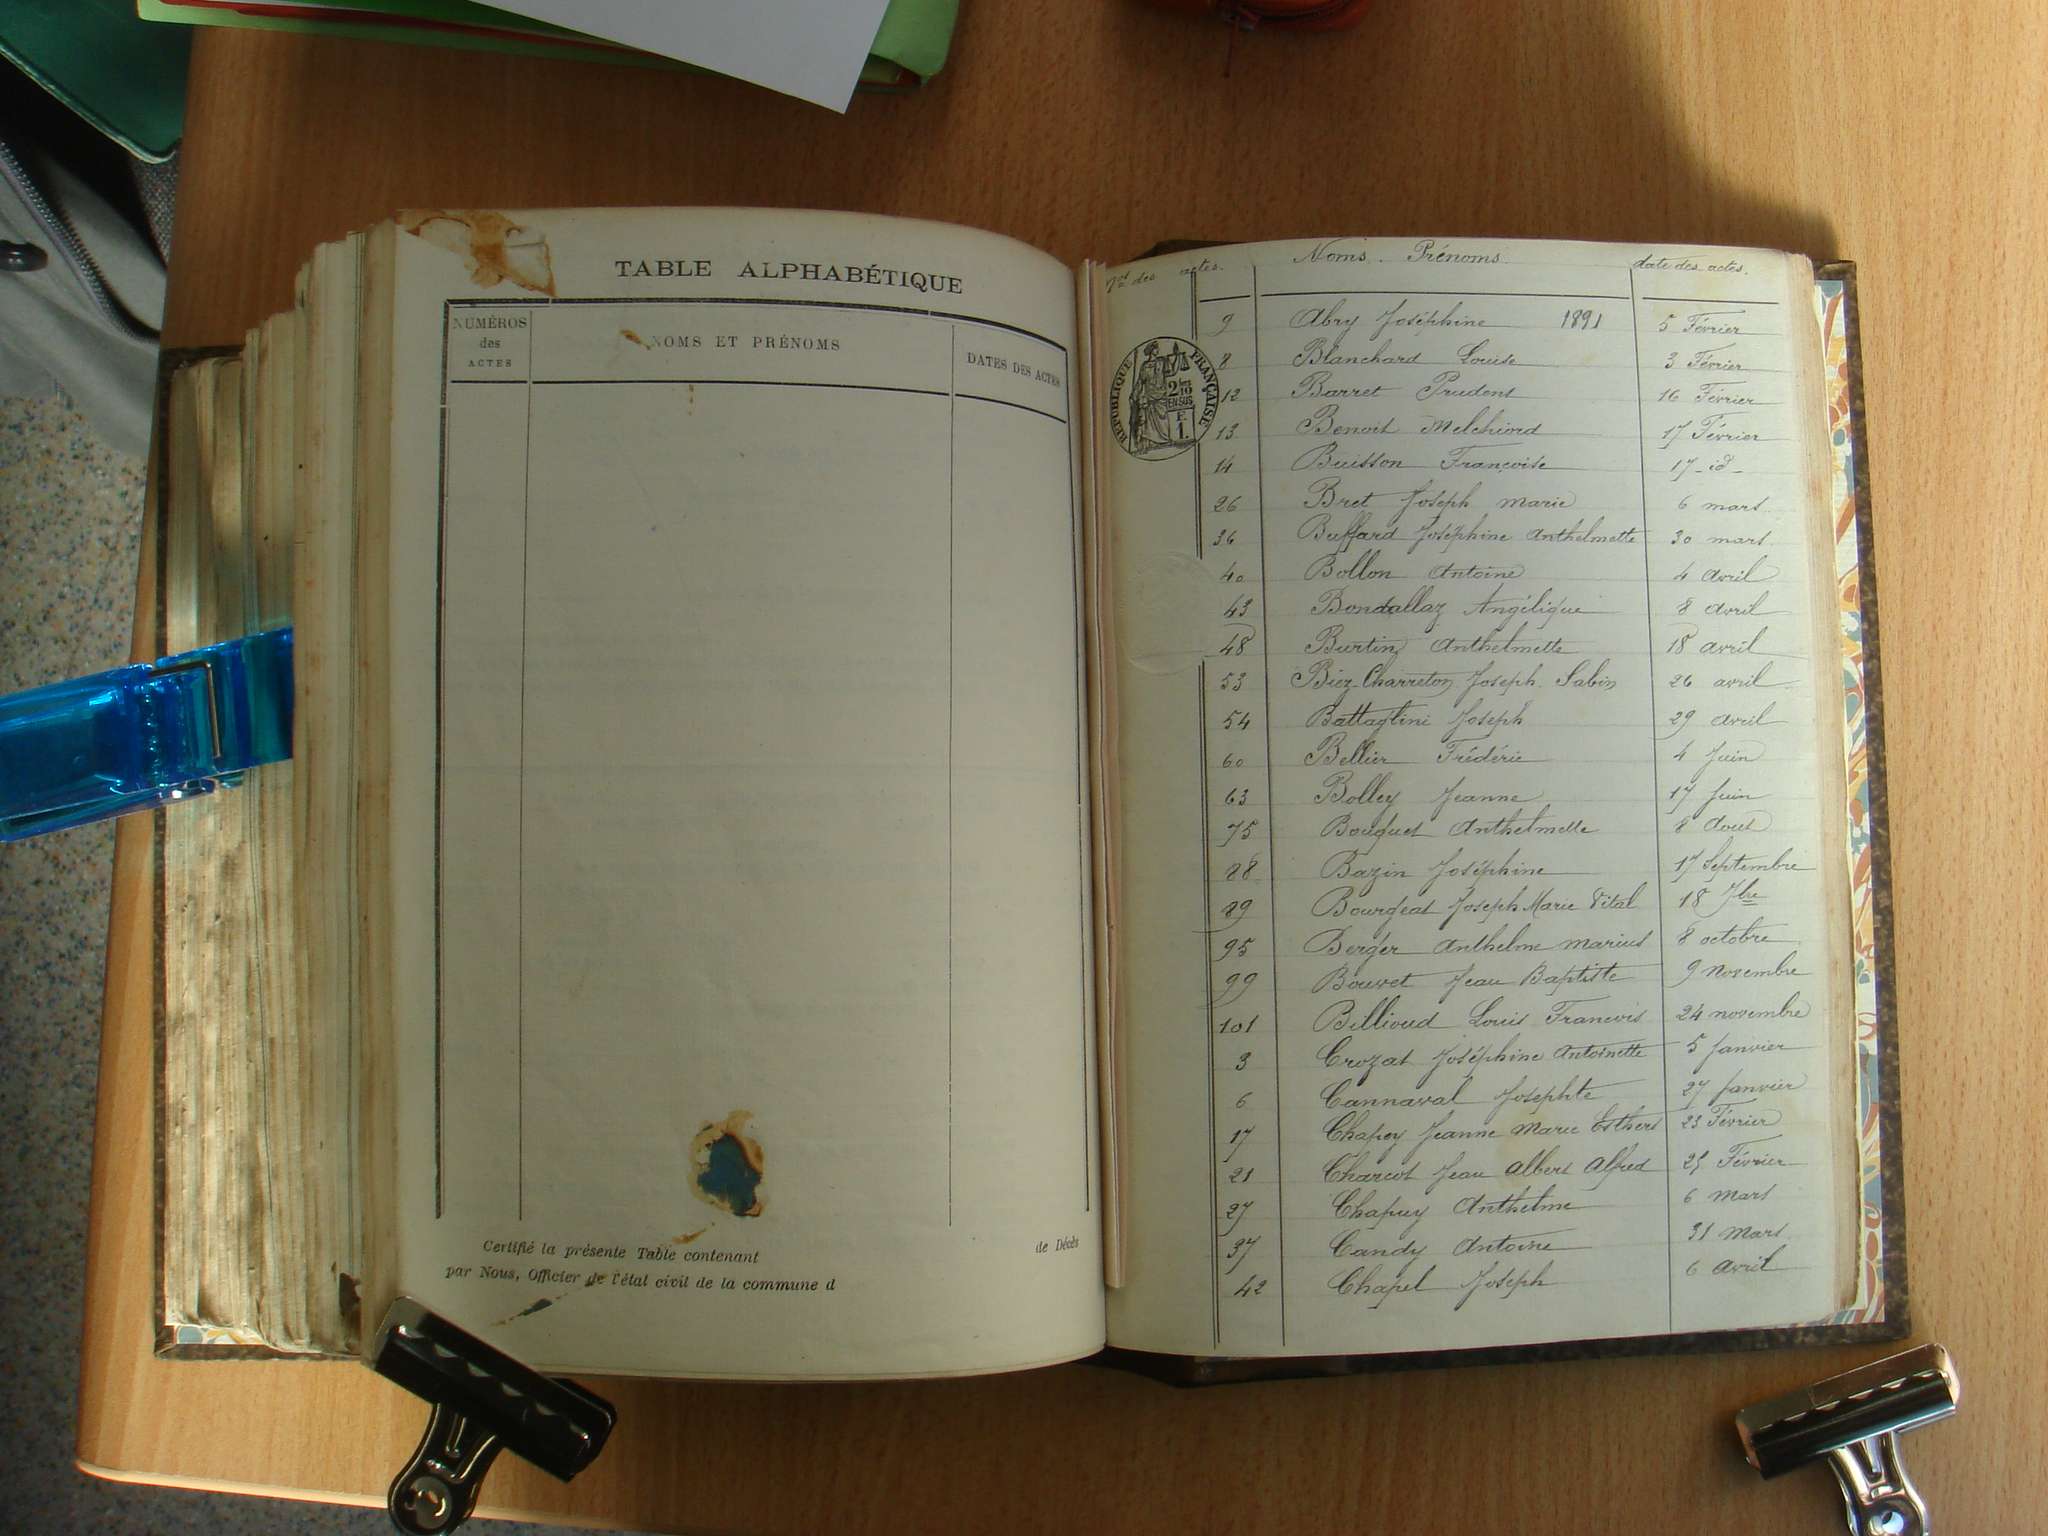 TABLE ALPHABÉTIQUE
NUMÉROS des ACTES
NOMS ET PRÉNOMS
DATES DES ACTES
Certifié la présente Table contenant de Décès
par Nous, Officier de l'état civil de la commune d
Nos des actes. Noms. Prénoms date des actes.
RÉPUBLIQUE FRANÇAISE
2/10 EN SUS
F. 1.
9 Abry Joséphine 1891 5 Février
8 Blanchard Louise 3 Février
12 Barret Prudent 16 Février
13 Benoit Melchiord 17 Février
14 Buisson Françoise 17 - id -
26 Bret Joseph Marie 6 mars
36 Buffard Joséphine Anthelmette 30 mars
40 Bollon Antoine 4 avril
43 Bondallaz Angélique 8 avril
48 Burtin Anthelmette 18 avril
53 Biez-Charreton Joseph Sabin 26 avril
54 Battaglini Joseph 29 avril
60 Bellier Frédéric 4 Juin
63 Bolley Jeanne 17 Juin
75 Bouquet Anthelmette 8 Aout
88 Bazin Joséphine 17 Septembre
89 Bourgeat Joseph Marie Vital 18 7bre
95 Berger Anthelme Marius 8 octobre
99 Bouvet Jean Baptiste 9 Novembre
101 Billioud Louis François 24 novembre
3 Crozat Joséphine Antoinette 5 Janvier
6 Cannaval Josephte 27 Janvier
17 Chapey Jeanne Marie Esther 23 Février
21 Charcot Jean Albert Alfred 25 Février
27 Chapuy Anthelme 6 Mars
37 Candy Antoine 31 Mars
42 Chapel Joseph 6 Avril